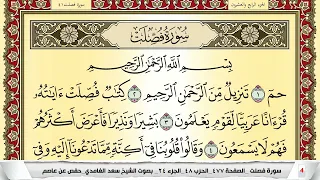 الجزء الرابع والعشرون
سورة فصلت ٤١
سُورَةُ فُصِّلَتْ
بِسْمِ اللَّهِ الرَّحْمَٰنِ الرَّحِيمِ
حمٓ ١ تَنزِيلٌ مِّنَ الرَّحْمَٰنِ الرَّحِيمِ ٢ كِتَٰبٌ فُصِّلَتْ ءَايَٰتُهُۥ
قُرْءَانًا عَرَبِيًّا لِّقَوْمٍ يَعْلَمُونَ ٣ بَشِيرًا وَنَذِيرًا فَأَعْرَضَ أَكْثَرُهُمْ
فَهُمْ لَا يَسْمَعُونَ ٤ وَقَالُوا۟ قُلُوبُنَا فِىٓ أَكِنَّةٍ مِّمَّا تَدْعُونَآ إِلَيْهِ وَفِىٓ
سورة فصلت . الصفحة ٤٧٧ . الحزب ٤٨ . الجزء ٢٤ . بصوت الشيخ سعد الغامدي . حفص عن عاصم
4